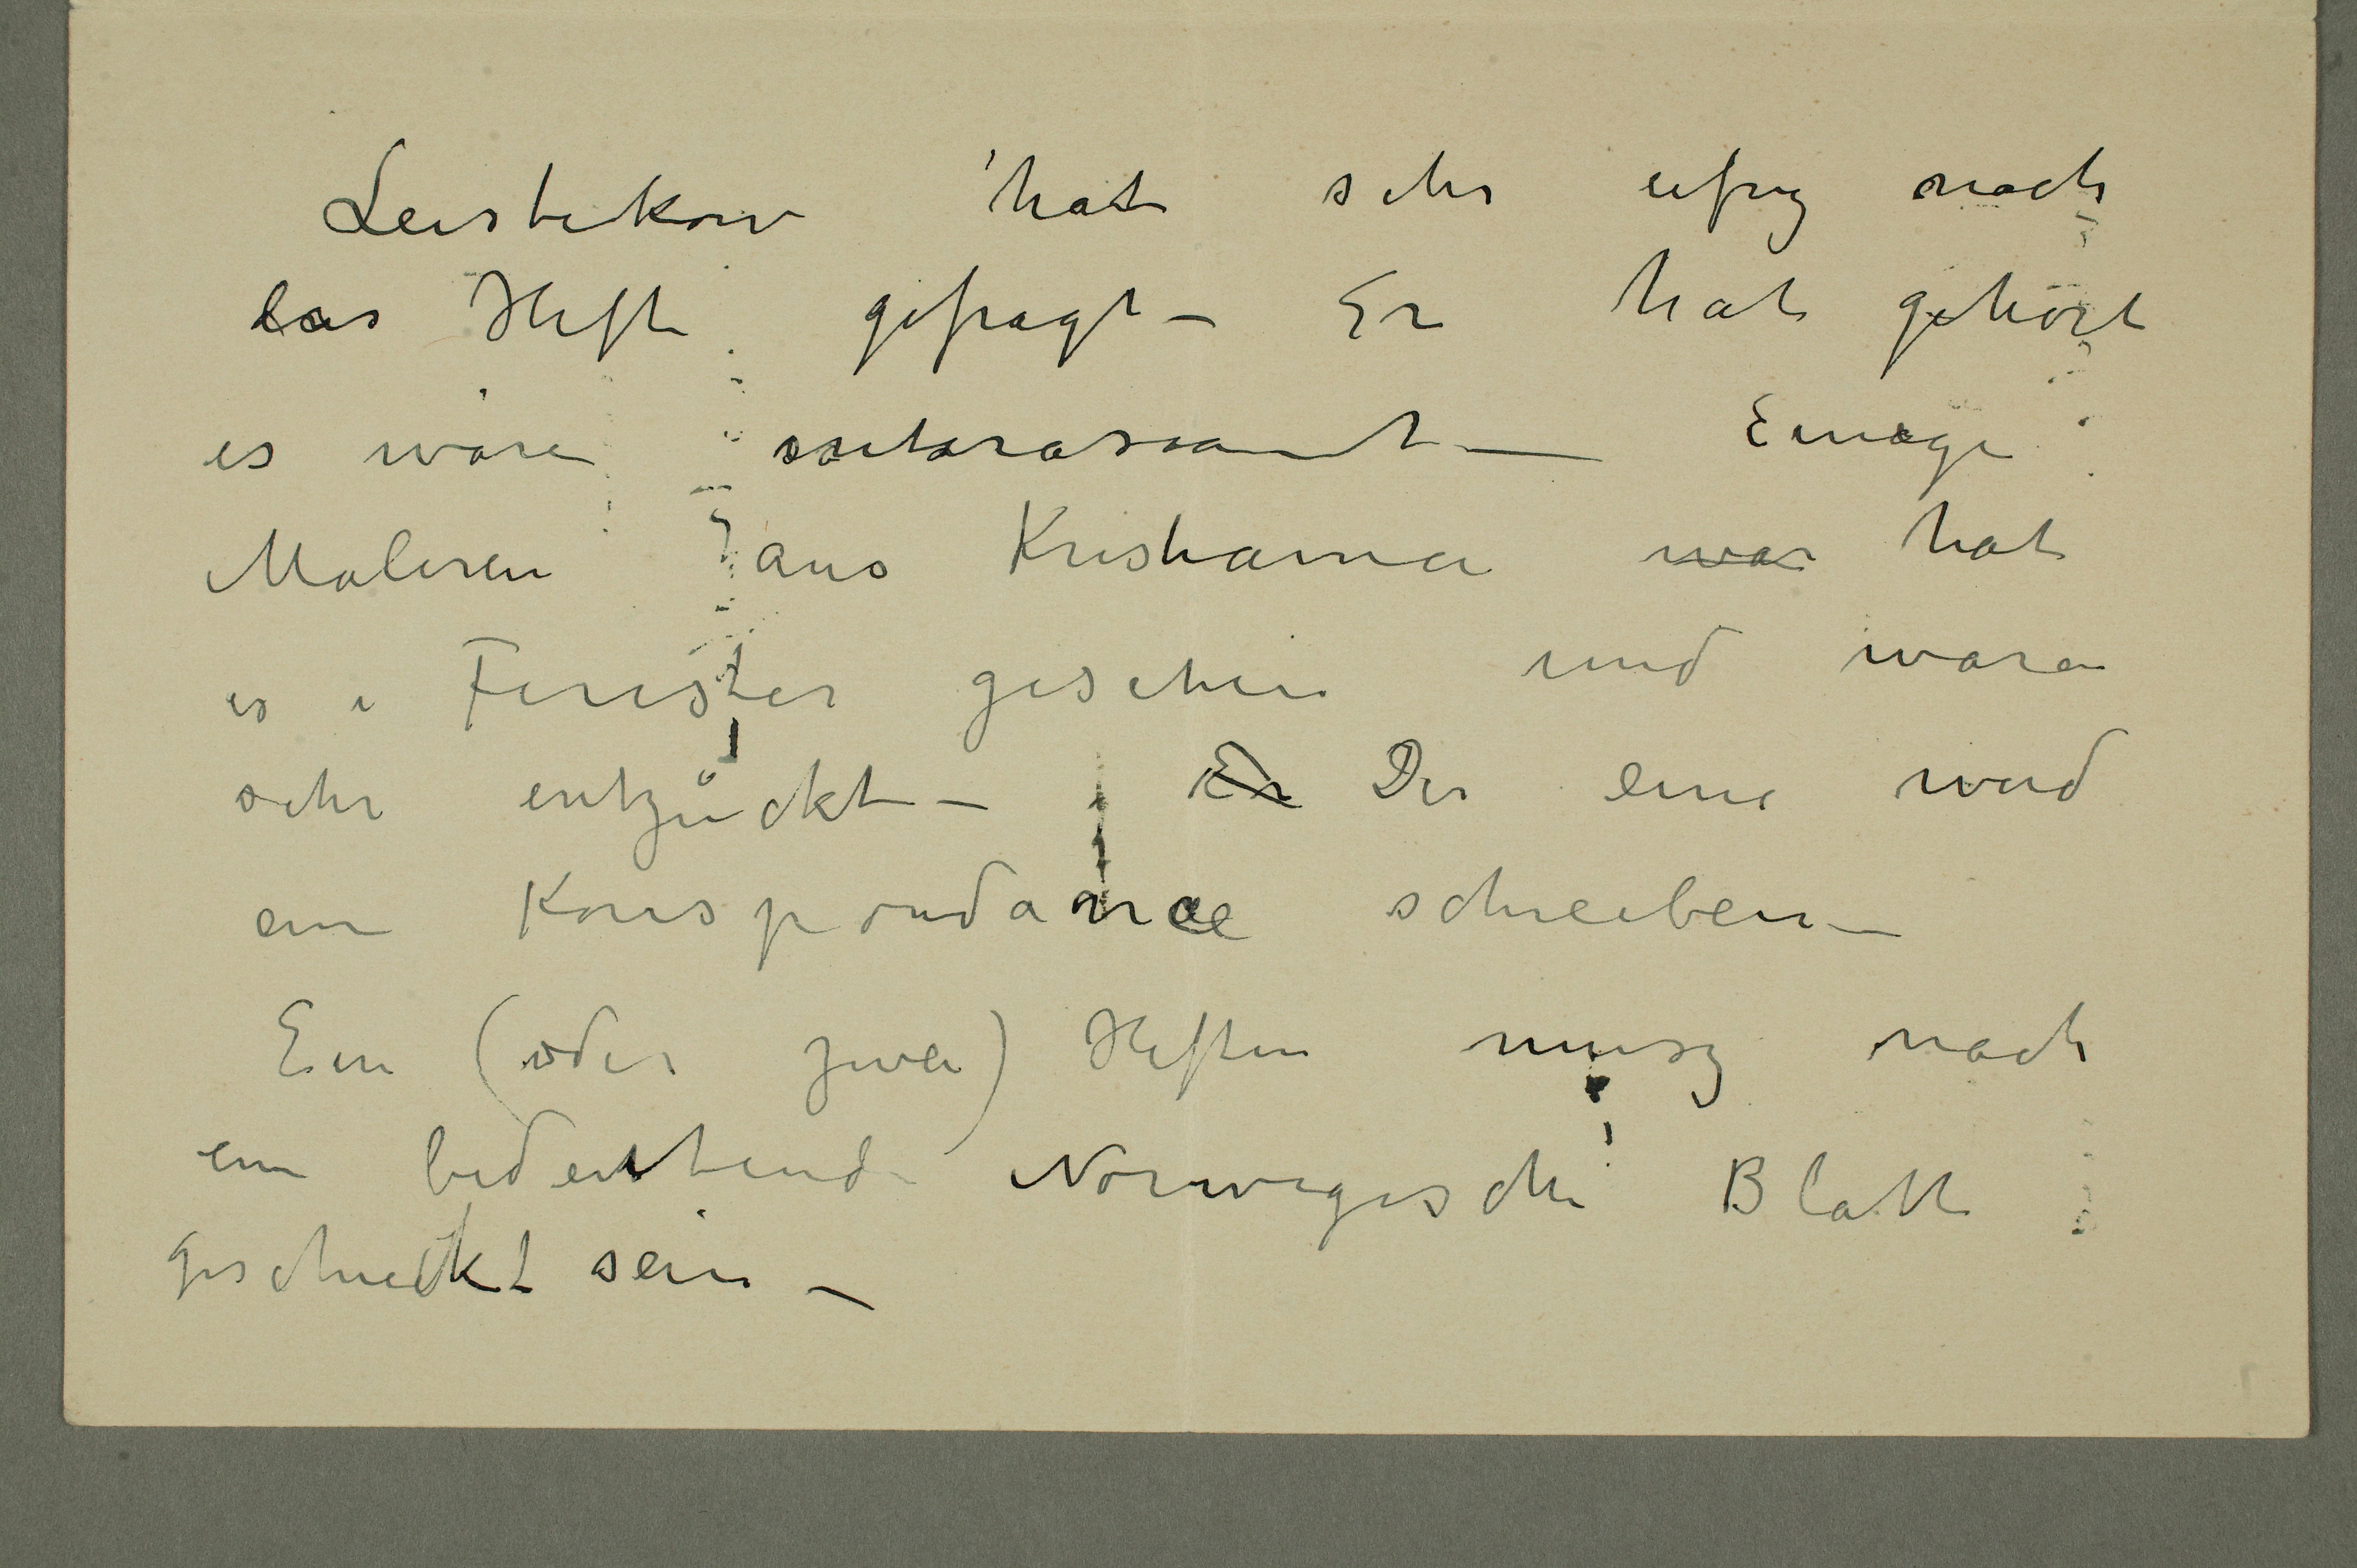 Leistikow hat sehr eifrig nach
das Heft gefragt – Er hat gehört
es wäre interassant – Einige
Maleren aus Kristiania war hat
es i Fenster gesehen und waren
sehr entzückt – Er Der eine wird
ein Korrespondance schreiben –
Ein (oder zwei) Heften musz nach
ein bedeutend Norwegische Blatt
geschickt sein –